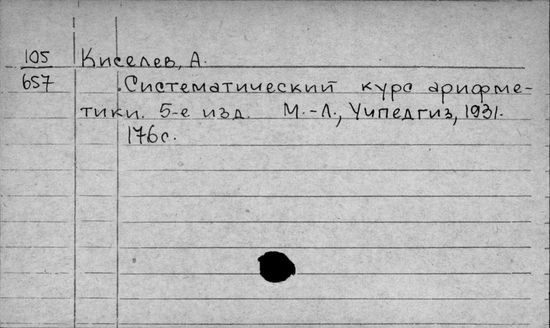 105 Киселев, А.
657 Систематический курс арифме-
тики. 5-е изд. М.-Л., Учпедгиз, 1931.
176с.